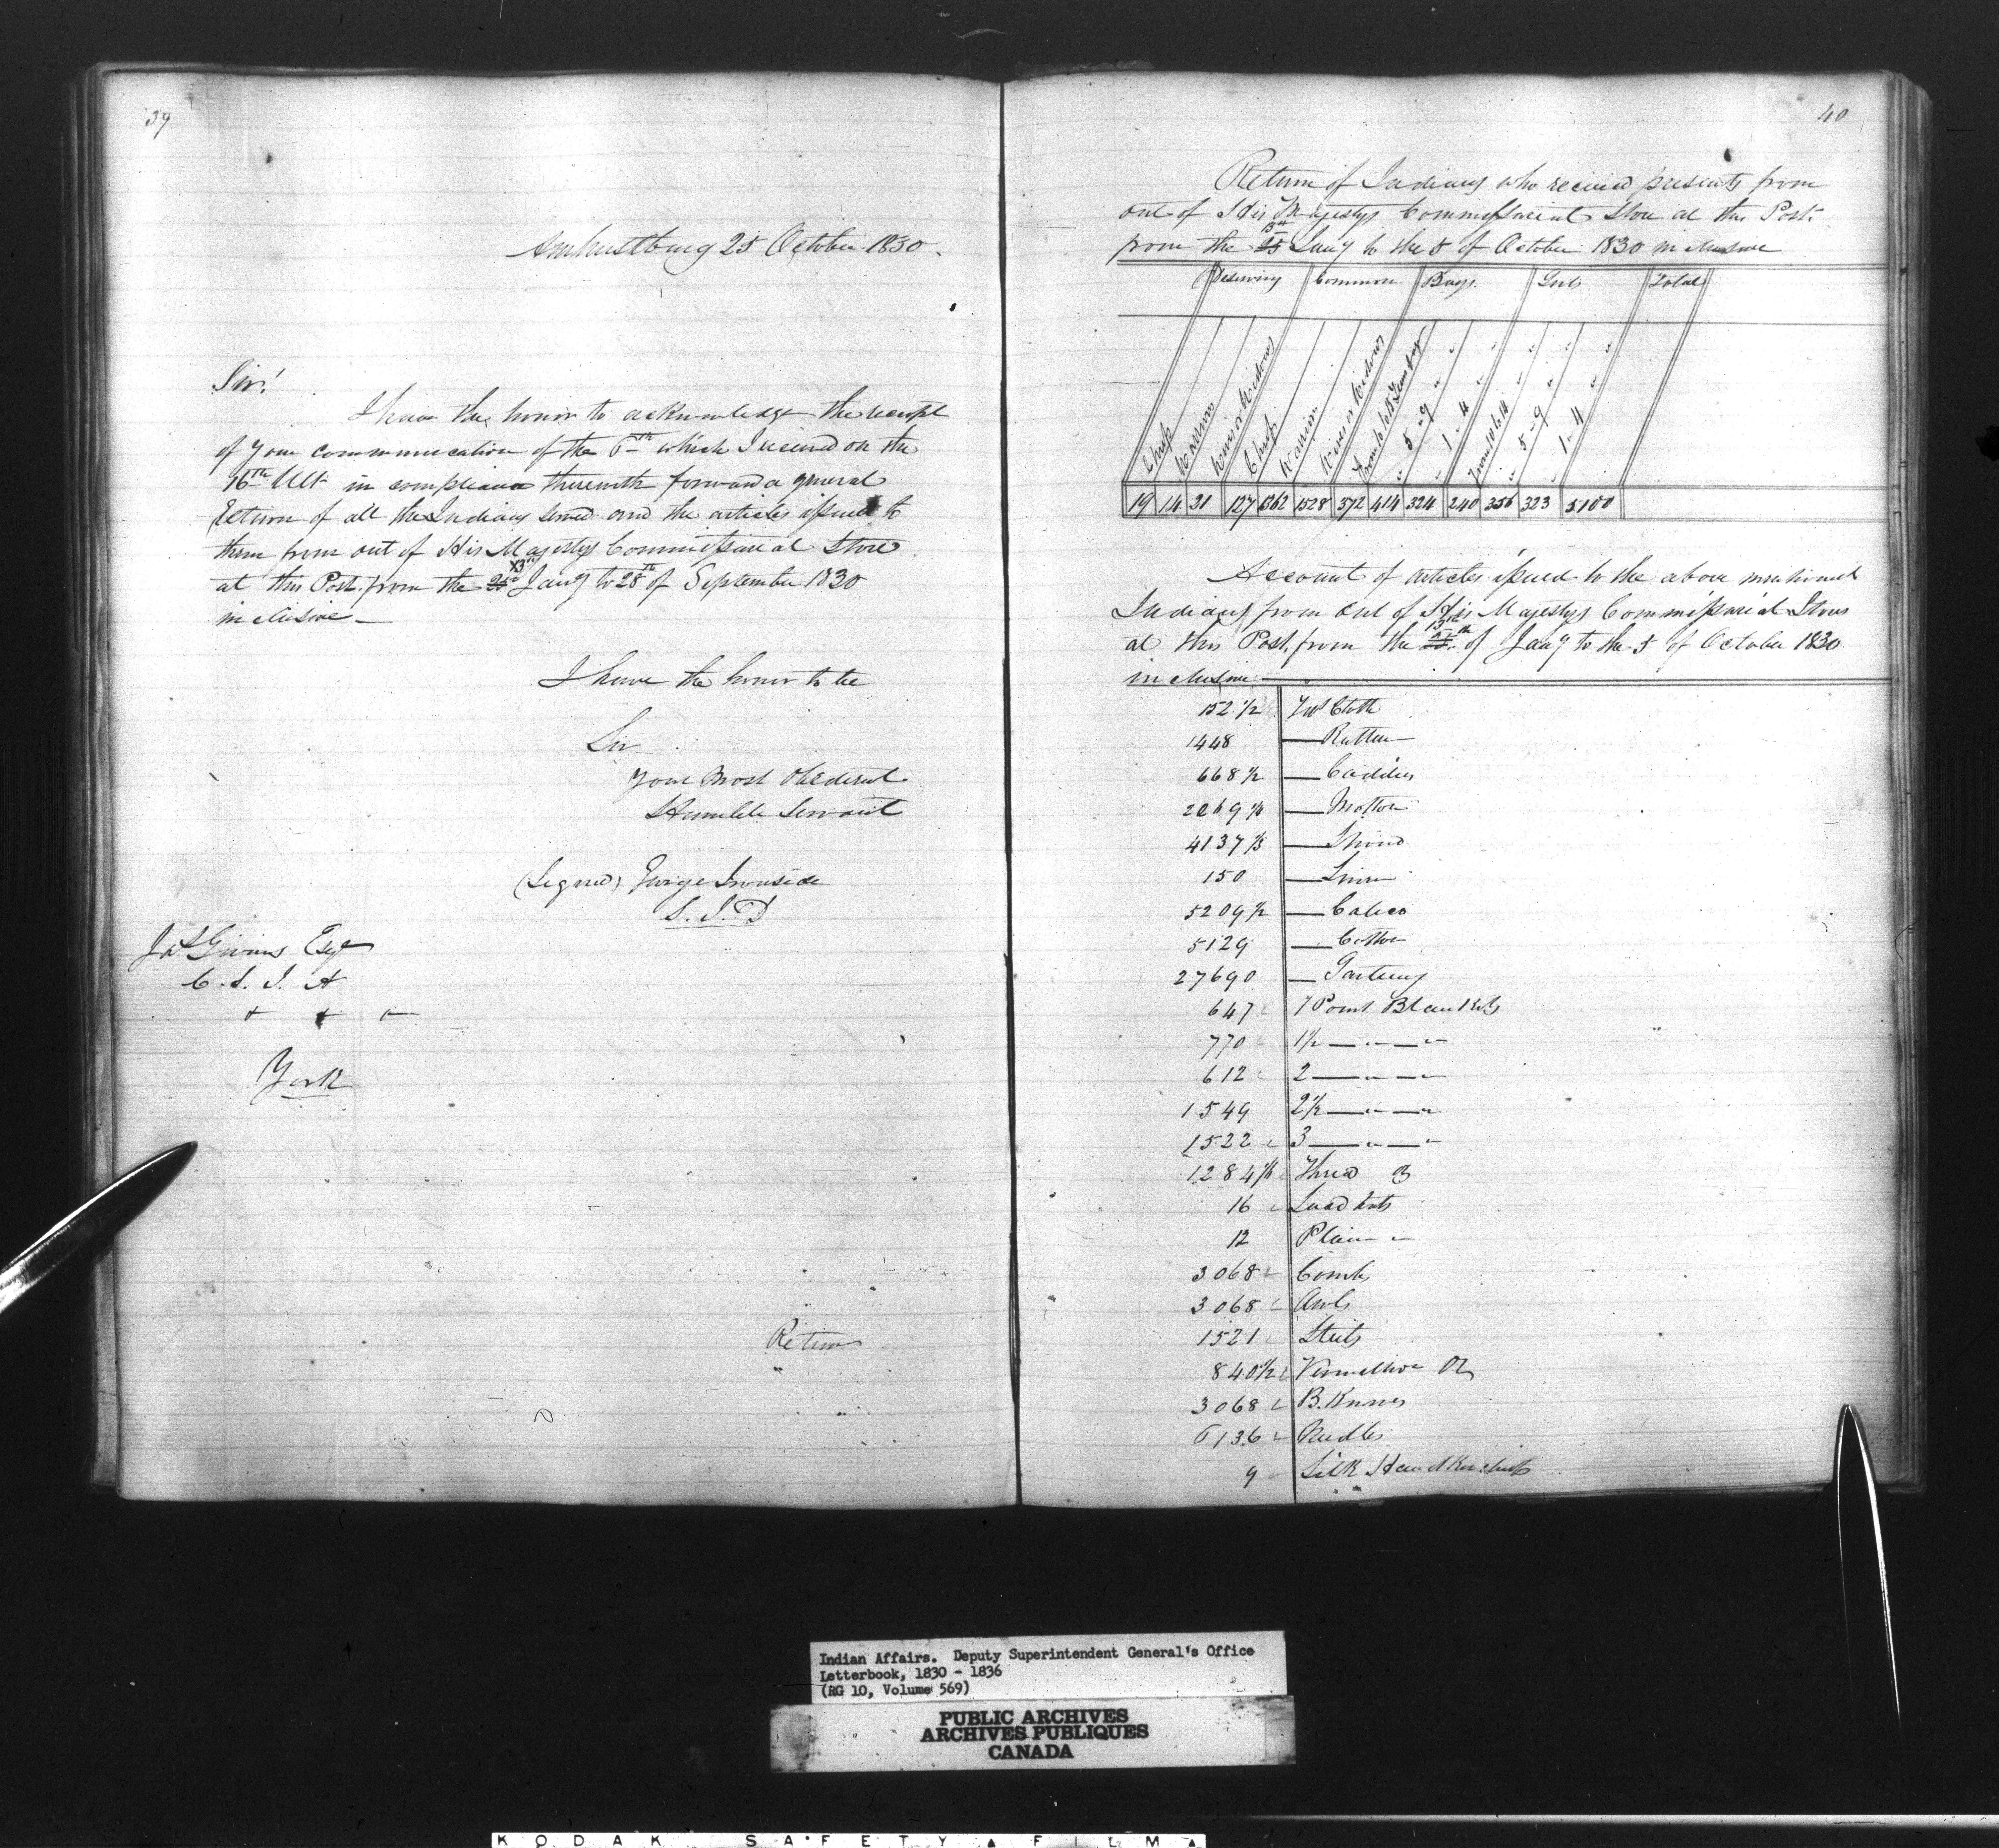 39
Amherstburg 25 October 1830.
Sir!
I have the honor to acknowledge the receipt
of your communication of the 6th which I received on the
16th Ult in compliance therewith forward a general
Return of all the Indians and the articles issued to
them from out of His Majestys Commissariat Store
at this Post from the 13th Jany to 28th of September 1830
inclusive
I have the honor to be
Sir
your Most Obedient
Humble Servant
(Signed) George Ironside
S. I. D
Jas Givins Esqr
C. S. I. A
+ + +
York
Return
40
Return of Indians who received presents from
out of His Majestys Commissariat Store at this Post
from the 13th Jany to the 5 of October 1830 inclusive
Deserving Common Boys Girls Total
Chiefs Warriors Wives or Widows Chiefs Warriors Wives or Widows From 10 to 14 " 5 - 9 " " 1 - 4 " From 10 to 14 " 5 - 9 " " 1 - 4 "
19 14 21 127 1362 1528 372 414 324 240 356 323 5100
Account of Articles issued to the above mentioned
Indians from out of His Majestys Commissariat Stores
at this Post, from the 13th of Jany to the 5 of October 1830
inclusive
152 1/2 Cloth
1448 — Ratteen
668 1/2 — Caddies
— Molton
4137 1/3 — Stroud
150 — Linen
5209 1/2 — Calico
5129 — Cotton
27690 — Gartering
647 1 Point Blankets
770 1 1/2 — " — "
612 2 — " — "
1549 2 1/2 — " — "
1522 3 — " — "
Thread
16 Laced hats
12 Plain "
3068 Combs
3068 Awls
1521 Steels
840 1/2 Vermillion Oz
3068 B. Knives
6136 Needles
9 Silk Handkerchiefs
Indian Affairs. Deputy Superintendent General's Office
Letterbook, 1830 - 1836
(RG 10, Volume 569)
PUBLIC ARCHIVES
ARCHIVES PUBLIQUES
CANADA
KODAK SAFETY ▲ FILM ▲